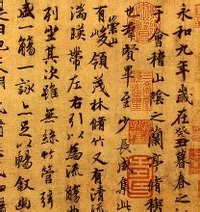 永和九年歲在癸丑暮春之
于會稽山陰之蘭亭脩稧
也羣賢畢至少長咸集此
有崇山峻領茂林脩竹又有清流
湍暎帶左右引以為流觴
列坐其次雖無絲竹管弦
盛一觴一詠亦足以暢敘幽